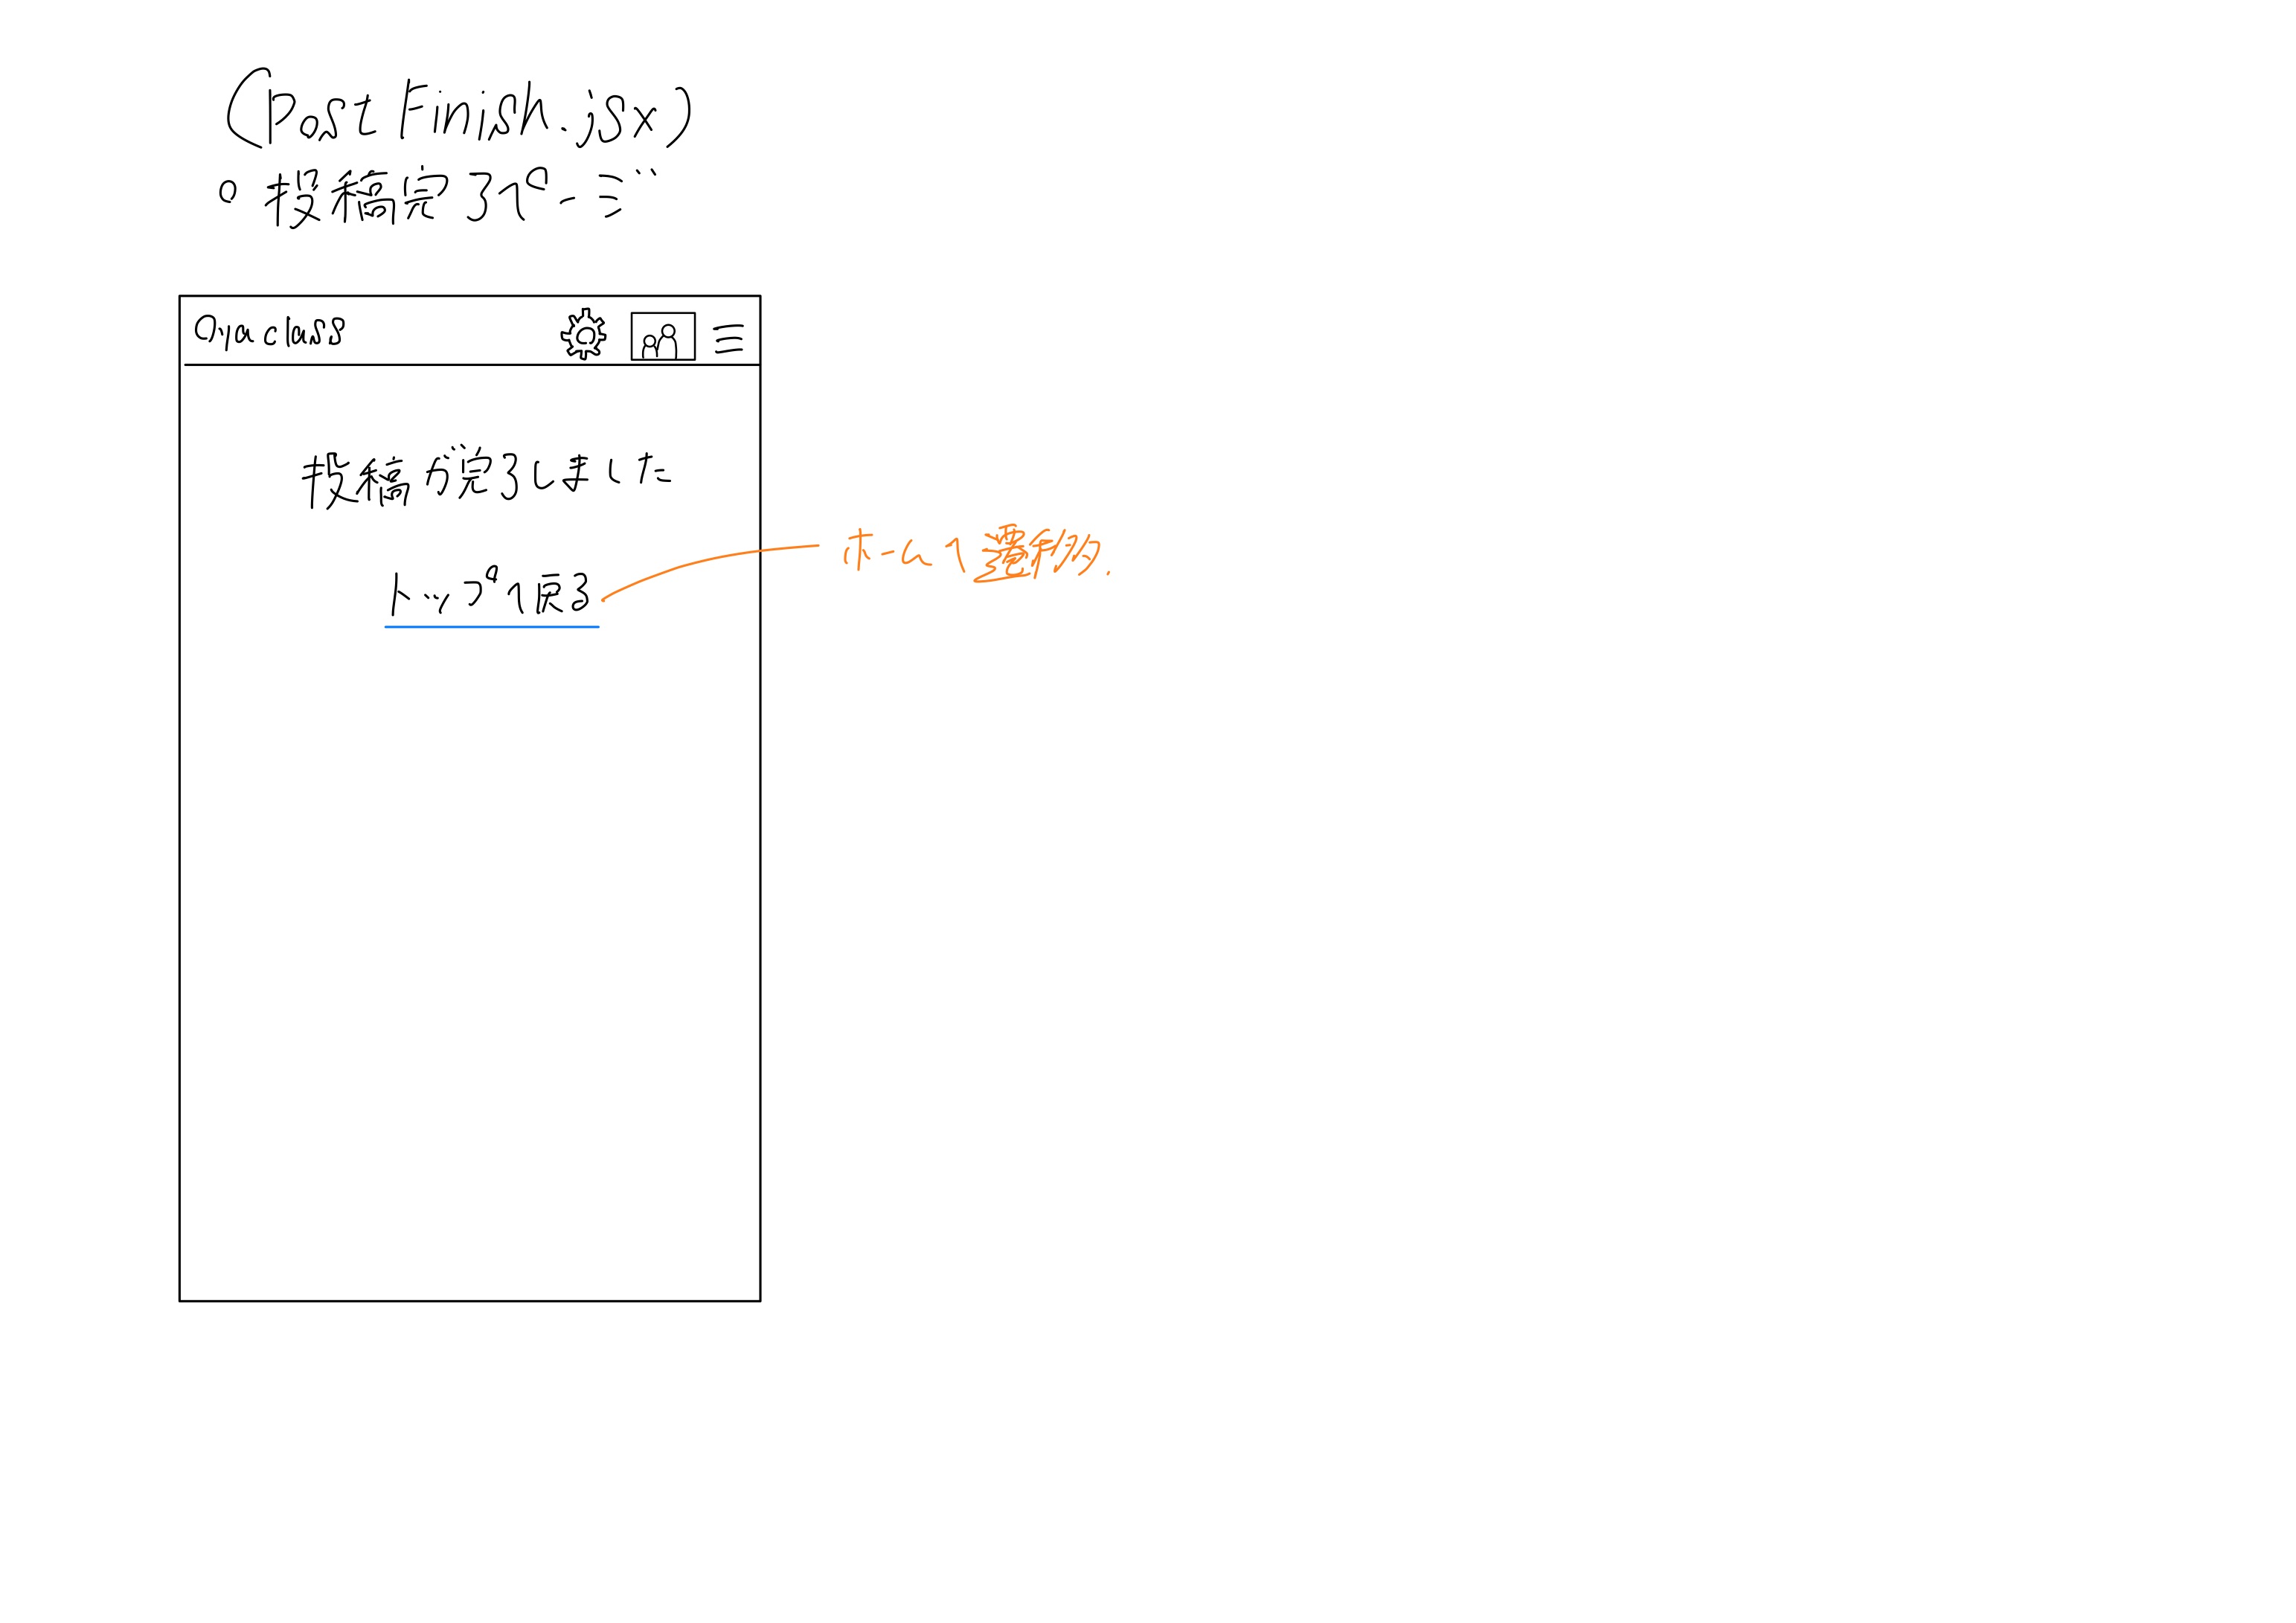 (PostFinish.jsx)
○ 投稿完了ページ
Oyaclass
投稿が完了しました
トップへ戻る
ホームへ遷移.